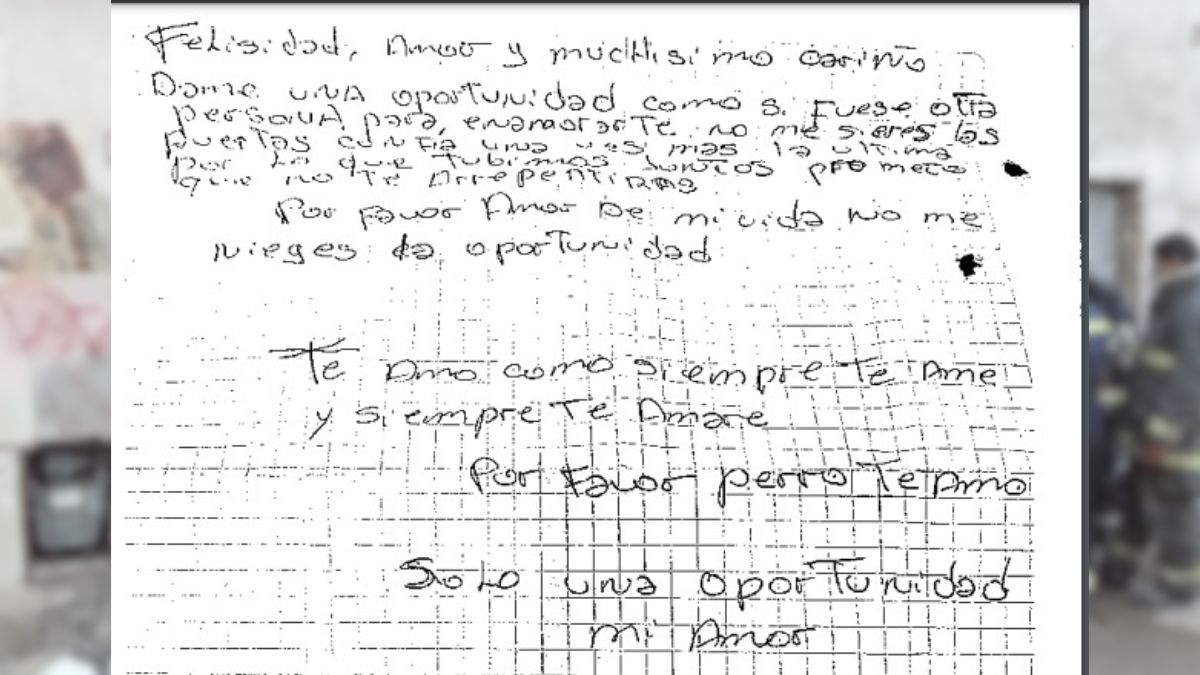 Felisidad, Amor y mucHisimo cariño
Dame uNA oportuNidad como si Fuese otra
persoNA para, enamorarTe no me sieres las
puertas conTra una ves mas la ultima
por Lo que Tubimos Juntos prometo
que no Te Arrepentiras
Por Favor Amor De mi vida No me
Nieges la oportuNidad
Te Amo como siempre Te Ame
y siempre Te Amare
Por Favor perro Te Amo
SoLo una oporTuNidad
mi Amor